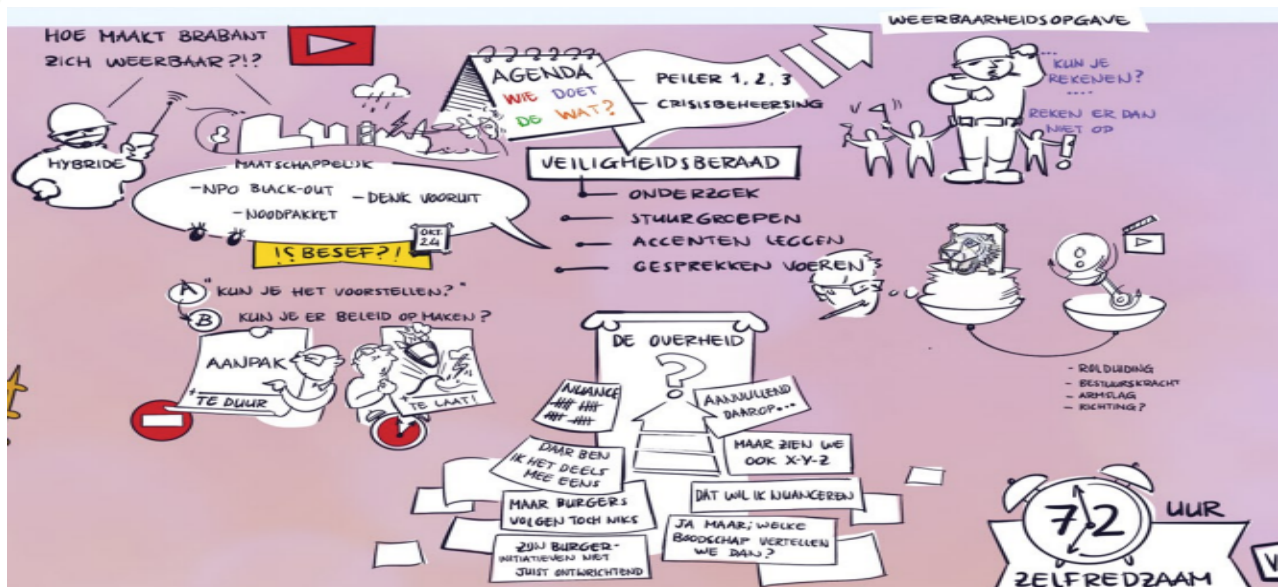 HOE MAAKT BRABANT
ZICH WEERBAAR?!?
HYBRIDE
MAATSCHAPPELIJK
- NPO BLACK-OUT
- DENK VOORUIT
- NOODPAKKET
OKT.
24
!? BESEF?!
A "KUN JE HET VOORSTELLEN?"
B KUN JE ER BELEID OP MAKEN?
AANPAK
+ TE DUUR
+ TE LAAT!
AGENDA
WIE DOET
DE WAT?
PEILER 1, 2, 3
CRISISBEHEERSING
VEILIGHEIDSBERAAD
ONDERZOEK
STUURGROEPEN
ACCENTEN LEGGEN
GESPREKKEN VOEREN
WEERBAARHEIDSOPGAVE
....
KUN JE
REKENEN?
....
REKEN ER DAN
NIET OP
- ROLDUIDING
- BESTUURSKRACHT
- ARMSLAG
- RICHTING?
DE OVERHEID
?
NUANCE
AANVULLEND
DAAROP...
DAAR BEN
IK HET DEELS
MEE EENS
MAAR ZIEN WE
OOK X-Y-Z
MAAR BURGERS
VOLGEN TOCH NIKS
DÁT WIL IK NUANCEREN
ZIJN BURGER-
INITIATIEVEN NIET
JUIST ONTWRICHTEND
JA MAAR; WELKE
BOODSCHAP VERTELLEN
WE DAN?
72 UUR
ZELFREDZAAM